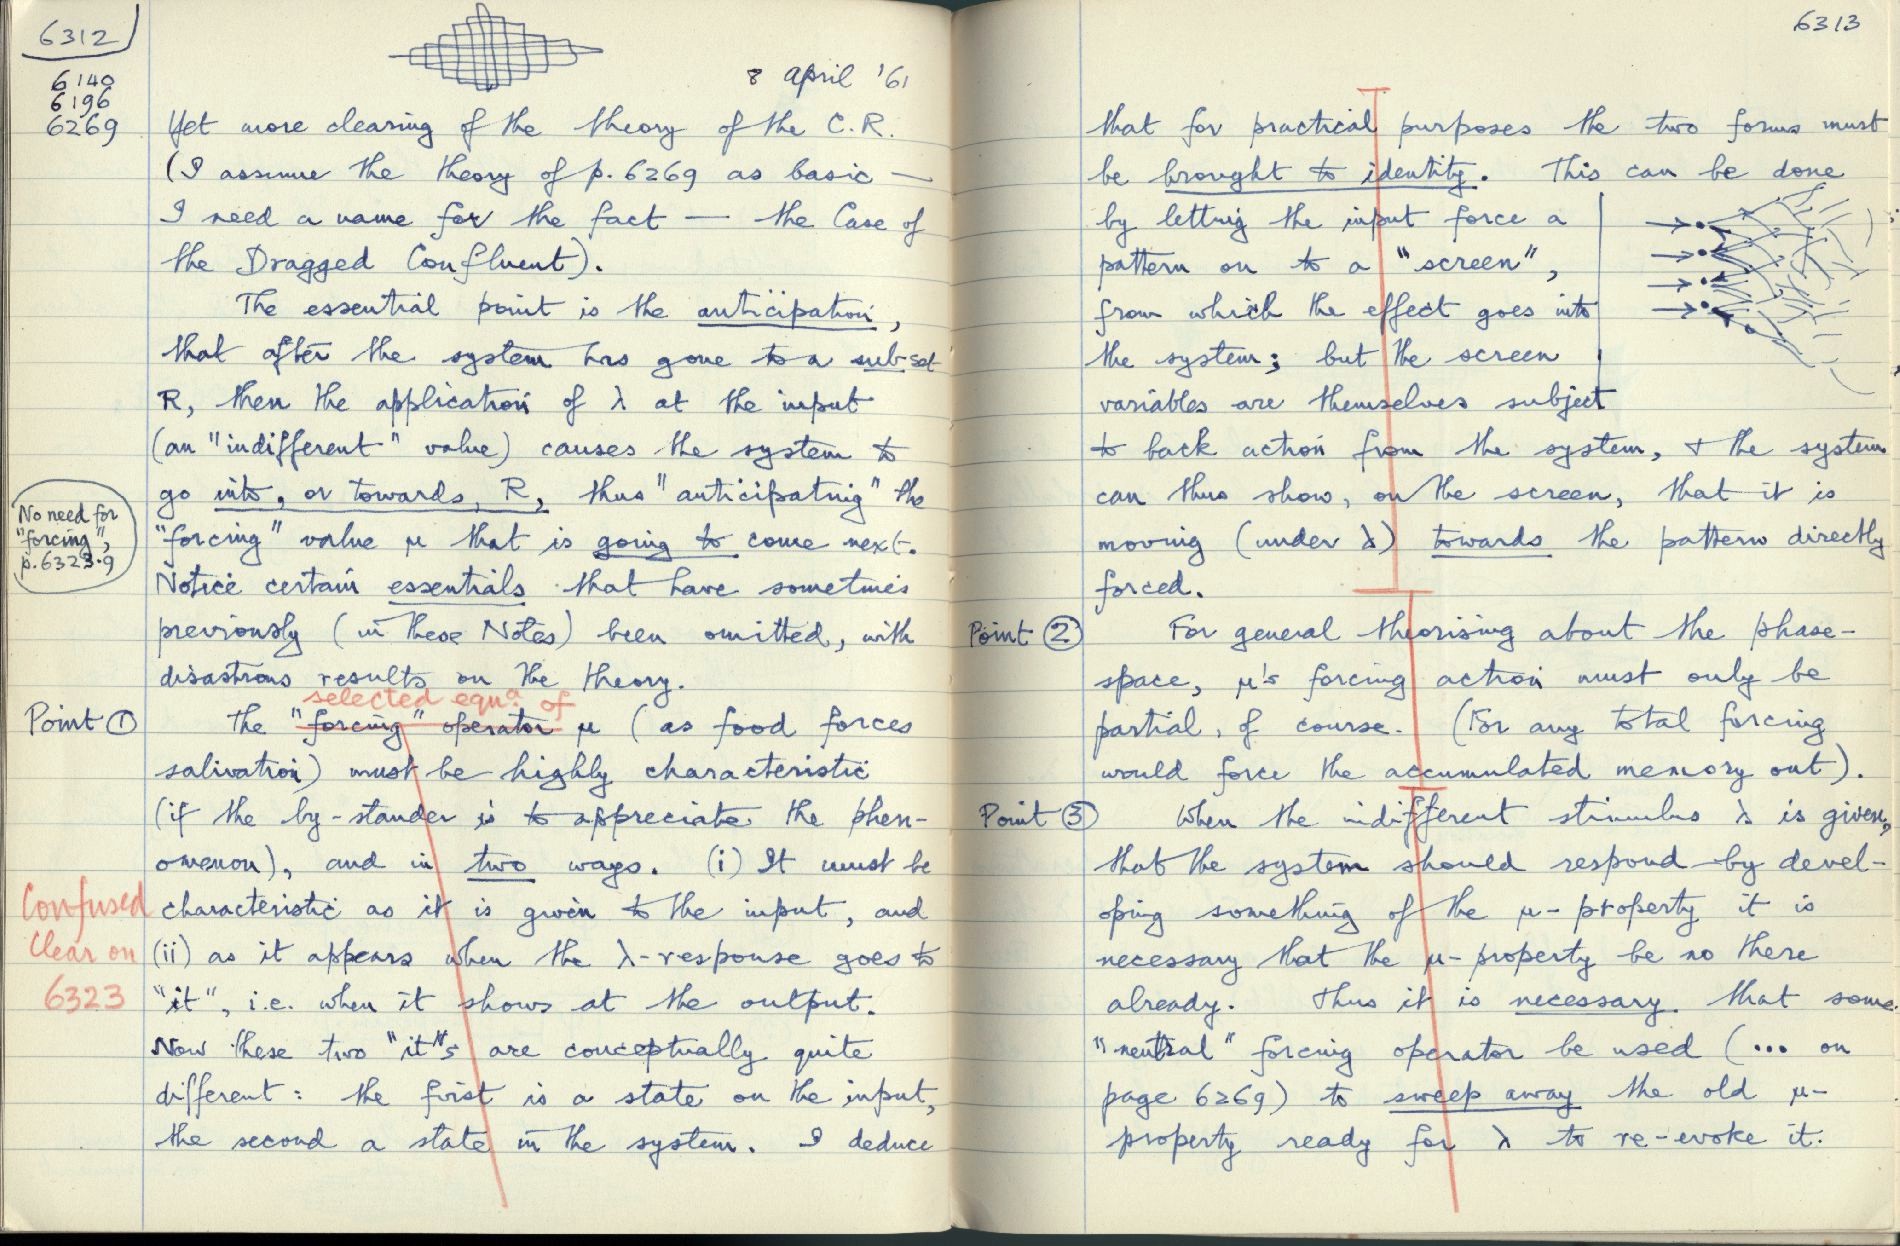 6312
6140
6196
6269
8 April '61
Yet more clearing of the theory of the C.R.
(I assume the theory of p. 6269 as basic —
I need a name for the fact — the Case of
the Dragged Confluent).
The essential point is the anticipation,
that after the system has gone to a sub-set
R, then the application of λ at the input
(an "indifferent" value) causes the system to
go into, or towards, R, thus "anticipating" the
"forcing" value μ that is going to come next.
No need for
"forcing",
p. 6323.9
Notice certain essentials that have sometimes
previously (in these Notes) been omitted, with
disastrous results on the theory.
selected equⁿ of
Point ①
The "forcing" operator μ (as food forces
salivation) must be highly characteristic
(if the by-stander is to appreciate the phen-
omenon), and in two ways. (i) It must be
Confused
Clear on
6323
characteristic as it is given to the input, and
(ii) as it appears when the λ-response goes to
"it", i.e. when it shows at the output.
Now these two "it"s are conceptually quite
different: the first is a state on the input,
the second a state in the system. I deduce
6313
that for practical purposes the two forms must
be brought to identity. This can be done
by letting the input force a
pattern on to a "screen",
from which the effect goes into
the system; but the screen
variables are themselves subject
to back action from the system, & the system
can thus show, on the screen, that it is
moving (under λ) towards the pattern directly
forced.
Point ②
For general theorising about the phase-
space, μ's forcing action must only be
partial, of course. (For any total forcing
would force the accumulated memory out).
Point ③
When the indifferent stimulus λ is given,
that the system should respond by devel-
oping something of the μ-property it is
necessary that the μ-property be no there
already. Thus it is necessary that some
"neutral" forcing operator be used (... on
page 6269) to sweep away the old μ-
property ready for λ to re-evoke it.